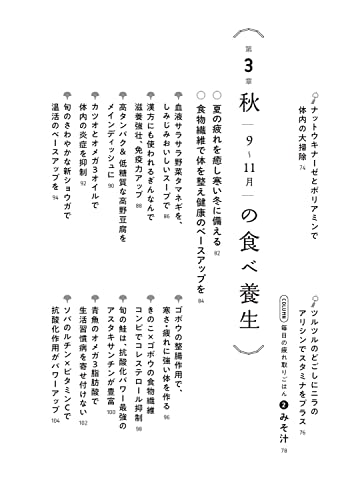 ナットウキナーゼとポリアミンで
体内の大掃除 74
ツルツルのどごしにニラの
アリシンでスタミナをプラス 76
COLUMN 毎日の疲れ取りごはん ❷ みそ汁 78
第3章 秋 9〜11月 の食べ養生
夏の疲れを癒し寒い冬に備える 82
食物繊維で体を整え健康のベースアップを 84
血液サラサラ野菜タマネギを、
しみじみおいしいスープで 86
漢方にも使われるぎんなんで
滋養強壮、免疫力アップ 88
高タンパク&低糖質な高野豆腐を
メインディッシュに 90
カツオとオメガ3オイルで
体内の炎症を抑制 92
旬のさわやかな新ショウガで
温活のベースアップを 94
ゴボウの整腸作用で、
寒さ・疲れに強い体を作る 96
きのこ×ゴボウの食物繊維
コンビでコレステロール抑制 98
旬の鮭は、抗酸化パワー最強の
アスタキサンチンが豊富 100
青魚のオメガ3脂肪酸で
生活習慣病を寄せ付けない 102
ソバのルチン×ビタミンCで
抗酸化作用がパワーアップ 104